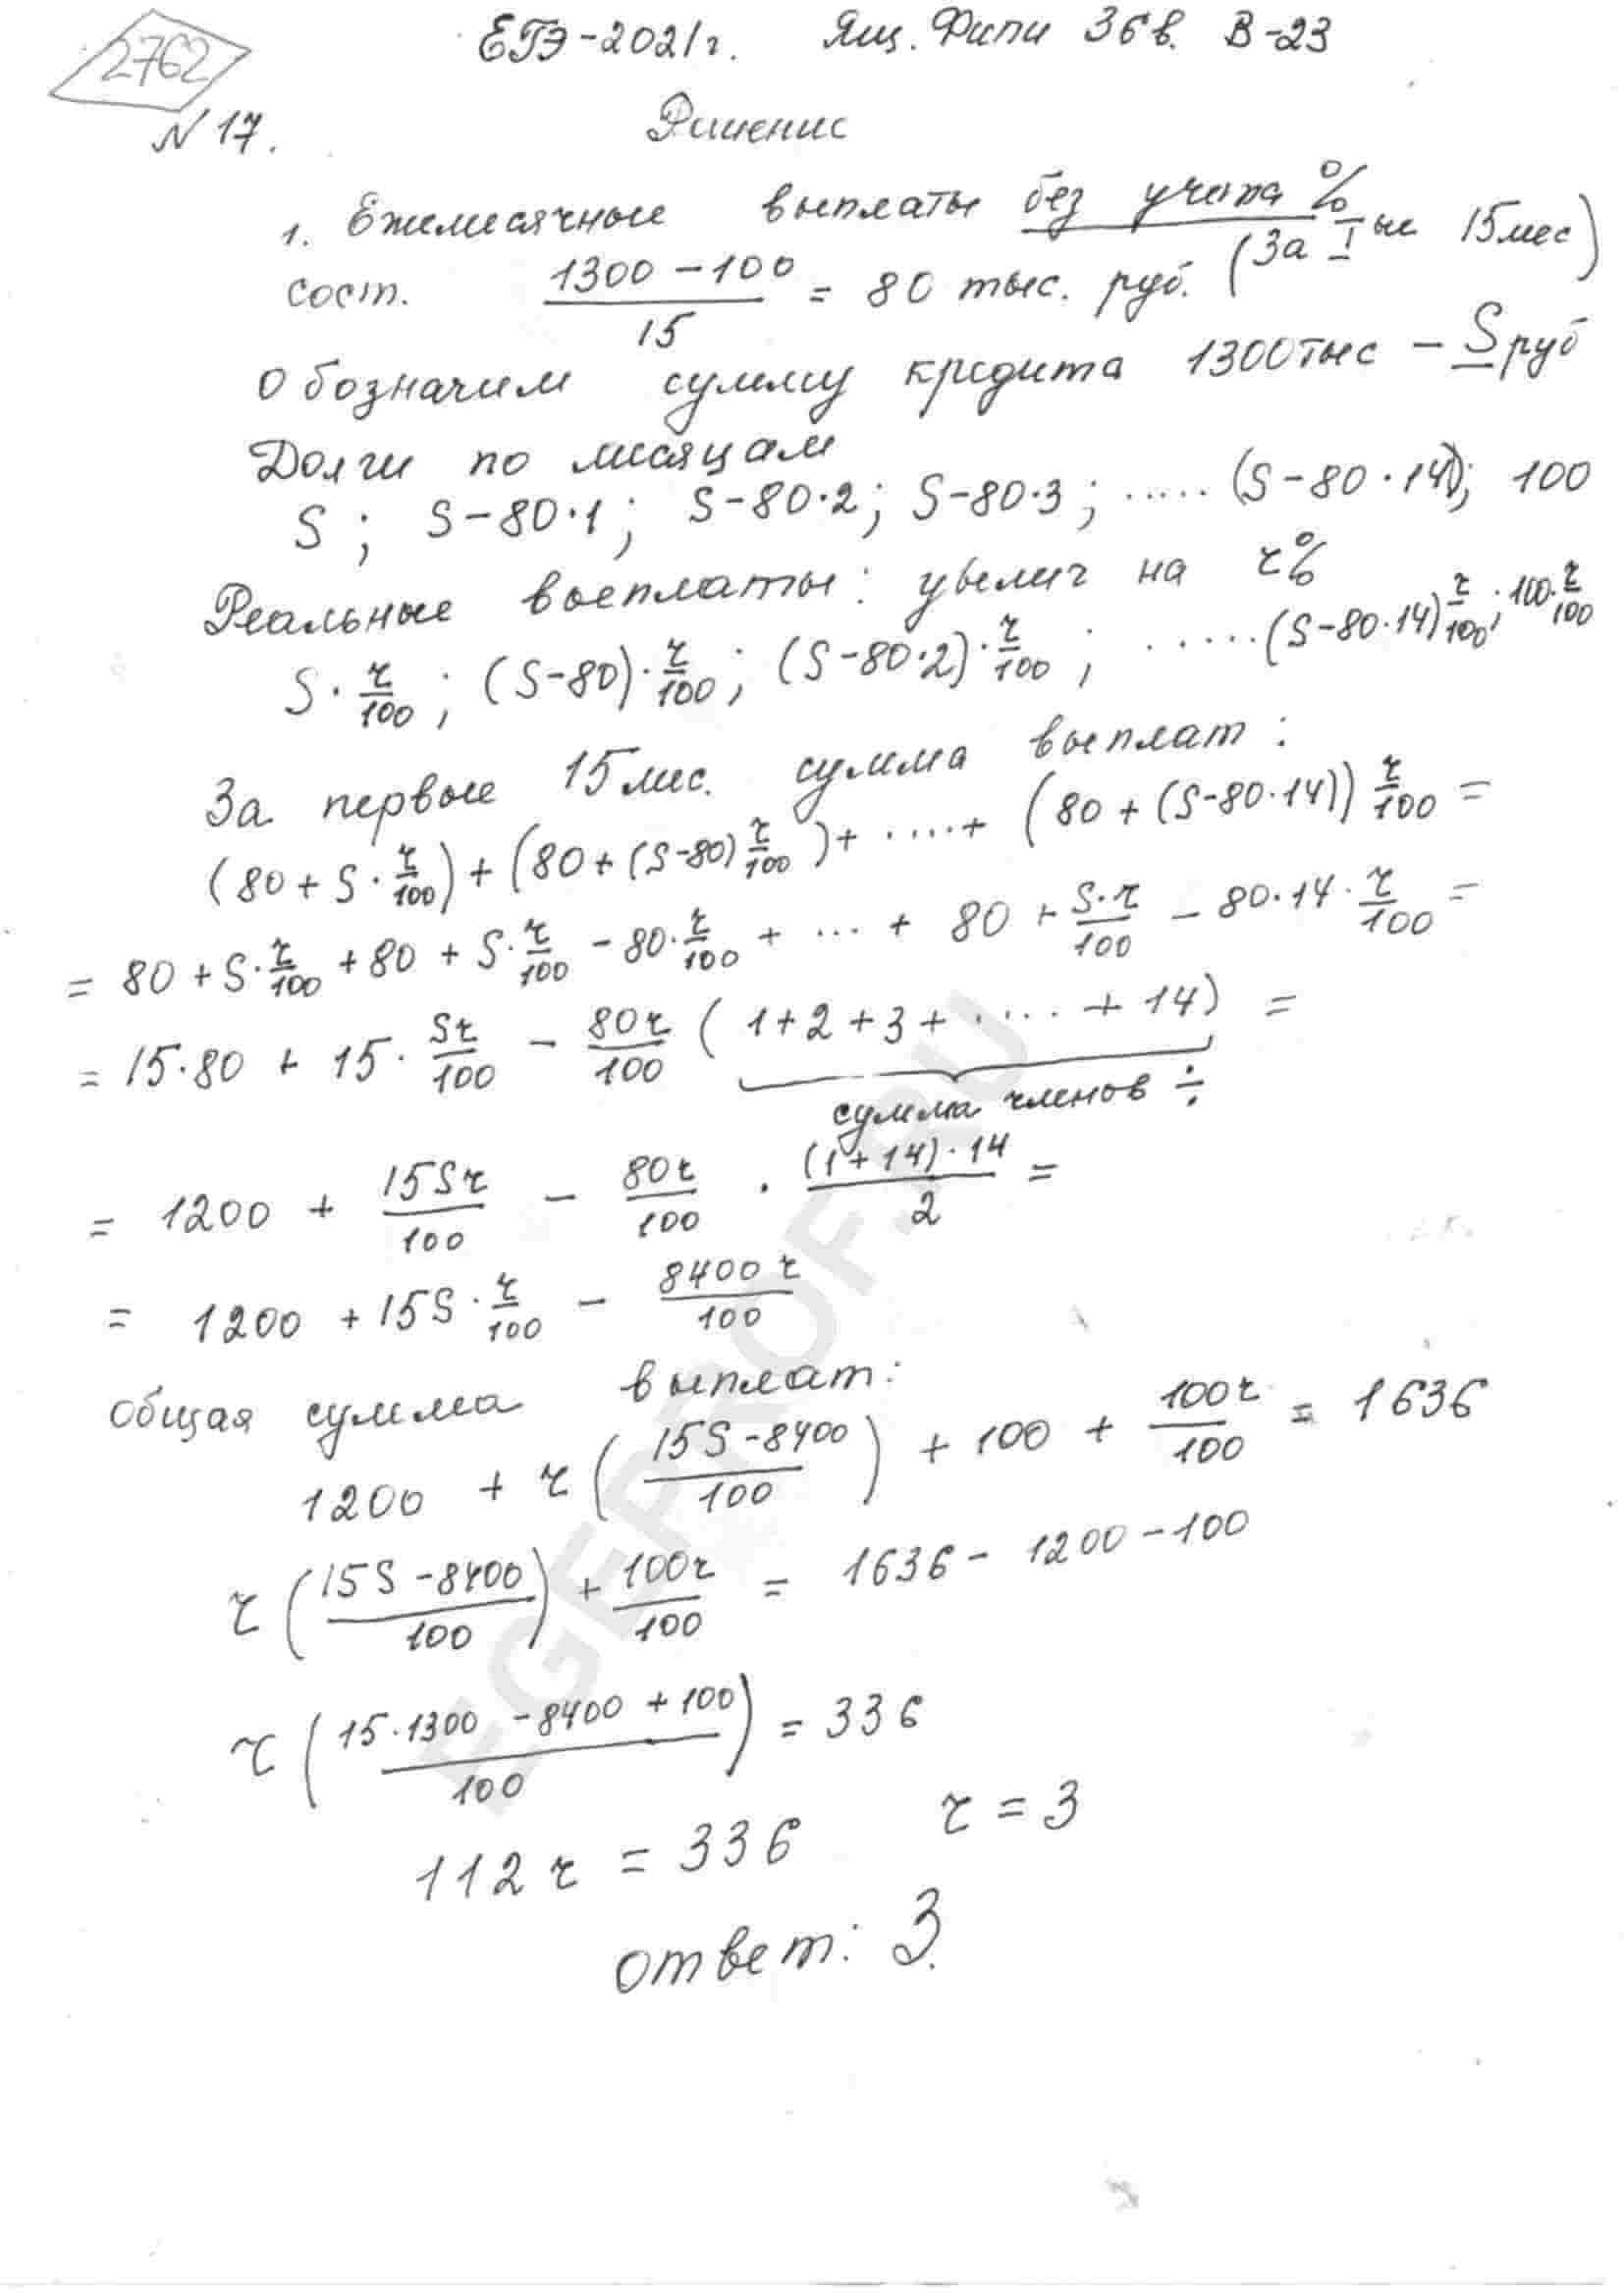 2762
ЕГЭ-2021г. Ящ. Фипи 36в. В-23
N 17.
Решение
1. Ежемесячные выплаты без учета %
сост. (1300 - 100)/15 = 80 тыс. руб. (За I ые 15 мес)
Обозначим сумму кредита 1300тыс - S руб
Долги по месяцам
S; S-80·1; S-80·2; S-80·3; ..... (S-80·14); 100
Реальные выплаты: увелич на r%
S·r/100; (S-80)·r/100; (S-80·2)·r/100; ..... (S-80·14)r/100; 100·r/100
За первые 15 мес. сумма выплат:
(80 + S·r/100) + (80 + (S-80)r/100) + ..... + (80 + (S-80·14)) r/100 =
= 80 + S·r/100 + 80 + S·r/100 - 80·r/100 + ... + 80 + S·r/100 - 80·14·r/100 =
= 15·80 + 15·Sr/100 - 80r/100 (1+2+3+ ..... + 14) =
сумма членов ÷
= 1200 + 15Sr/100 - 80r/100 · (1+14)·14/2 =
= 1200 + 15S·r/100 - 8400r/100
общая сумма выплат:
1200 + r((15S-8400)/100) + 100 + 100r/100 = 1636
r((15S-8400)/100) + 100r/100 = 1636 - 1200 - 100
r((15·1300 - 8400 + 100)/100) = 336
112r = 336 r = 3
ответ: 3.
EGEPROF.RU